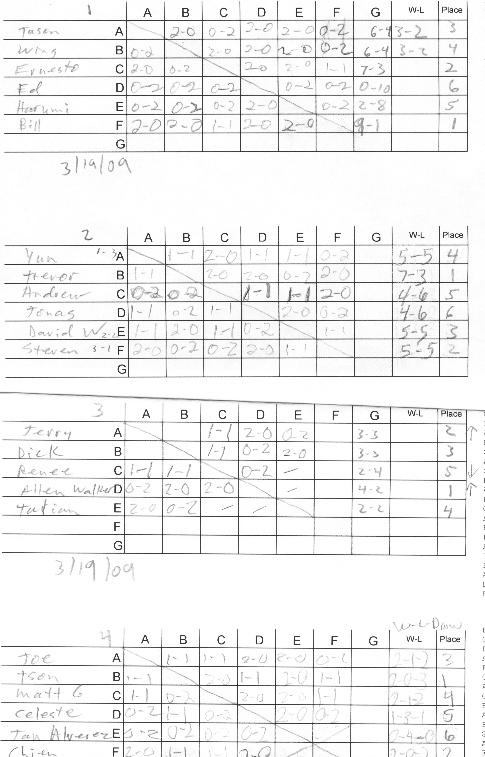 1 A B C D E F G W-L Place
Jason A 2-0 0-2 2-0 2-0 0-2 6-4 3-2 3
Wing B 0-2 2-0 2-0 2-0 0-2 6-4 3-2 4
Ernesto C 2-0 0-2 2-0 2-0 1-1 7-3 2
Ed D 0-2 0-2 0-2 0-2 0-2 0-10 6
Harumi E 0-2 0-2 0-2 2-0 0-2 2-8 5
Bill F 2-0 2-0 1-1 2-0 2-0 9-1 1
G
3/19/09
2 A B C D E F G W-L Place
Yun 1-3 A 1-1 2-0 1-1 1-1 0-2 5-5 4
Trevor B 1-1 2-0 2-0 0-2 2-0 7-3 1
Andrew C 0-2 0-2 1-1 1-1 2-0 4-6 5
Jonas D 1-1 0-2 1-1 2-0 0-2 4-6 6
David W 2-2 E 1-1 2-0 1-1 0-2 1-1 5-5 3
Steven 3-1 F 2-0 0-2 0-2 2-0 1-1 5-5 2
G
3 A B C D E F G W-L Place
Terry A 1-1 2-0 0-2 3-3 2 ↑
Dick B 1-1 0-2 2-0 3-3 3
Renee C 1-1 1-1 0-2 - 2-4 5 ↓
Allen Walker D 0-2 2-0 2-0 4-2 1 ↑
Tatian E 2-0 0-2 - - 2-2 4
F
G
3/19/09
W-L-Draw
4 A B C D E F G W-L Place
Joe A 1-1 1-1 2-0 2-0 0-2 2-1-2 3
Tson B 1-1 2-0 1-1 2-0 1-1 2-0-3 1
Matt G C 1-1 0-2 2-0 2-0 1-1 2-1-2 4
Celeste D 0-2 1-1 0-2 2-0 0-2 1-3-1 5
Alvarez E 0-2 0-2 0-2 0-2 0-4-0 6
Chien F 2-0 1-1 1-1 2-0 2-0-2 2